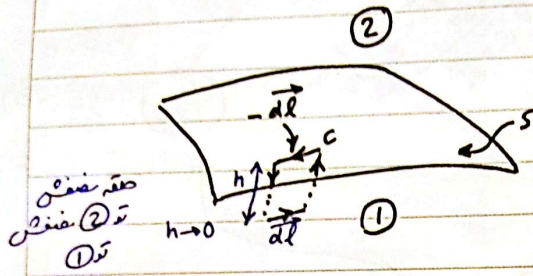 ②
- dl
C
S
h
حلقه نصفش
تو ② نصفش
تو ①
h→0
dl
①